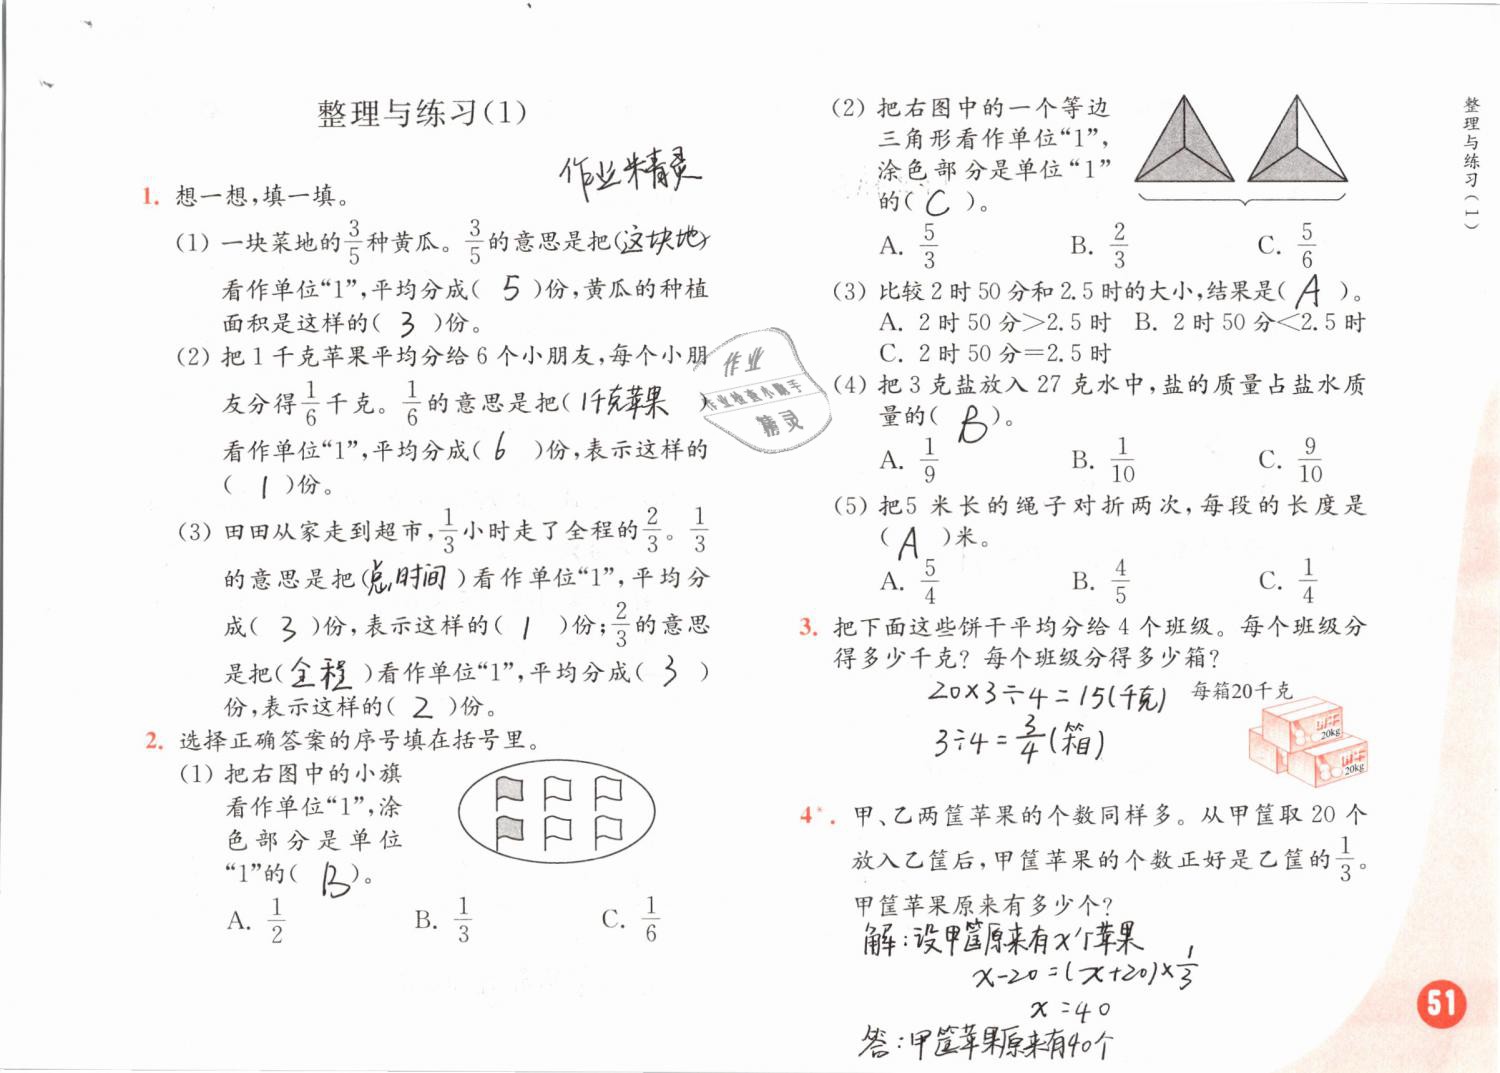 整理与练习(1)
作业精灵
1. 想一想,填一填。
(1) 一块菜地的3/5种黄瓜。3/5的意思是把(这块地)
看作单位“1”,平均分成( 5 )份,黄瓜的种植
面积是这样的( 3 )份。
(2) 把1千克苹果平均分给6个小朋友,每个小朋
友分得1/6千克。1/6的意思是把(1千克苹果 )
看作单位“1”,平均分成( 6 )份,表示这样的
( 1 )份。
(3) 田田从家走到超市,1/3小时走了全程的2/3。1/3
的意思是把(总时间 )看作单位“1”,平均分
成( 3 )份,表示这样的( 1 )份;2/3的意思
是把(全程 )看作单位“1”,平均分成( 3 )
份,表示这样的( 2 )份。
2. 选择正确答案的序号填在括号里。
(1) 把右图中的小旗
看作单位“1”,涂
色部分是单位
“1”的( B )。
A. 1/2 B. 1/3 C. 1/6
作业
作业检查小助手
精灵
(2) 把右图中的一个等边
三角形看作单位“1”,
涂色部分是单位“1”
的( C )。
A. 5/3 B. 2/3 C. 5/6
(3) 比较2时50分和2.5时的大小,结果是( A )。
A. 2时50分>2.5时 B. 2时50分<2.5时
C. 2时50分=2.5时
(4) 把3克盐放入27克水中,盐的质量占盐水质
量的( B )。
A. 1/9 B. 1/10 C. 9/10
(5) 把5米长的绳子对折两次,每段的长度是
( A )米。
A. 5/4 B. 4/5 C. 1/4
3. 把下面这些饼干平均分给4个班级。每个班级分
得多少千克?每个班级分得多少箱?
20×3÷4=15(千克) 每箱20千克
3÷4=3/4(箱)
20kg
20kg
4*. 甲、乙两筐苹果的个数同样多。从甲筐取20个
放入乙筐后,甲筐苹果的个数正好是乙筐的1/3。
甲筐苹果原来有多少个?
解:设甲筐原来有x个苹果
x-20=(x+20)×1/3
x=40
答:甲筐苹果原来有40个
整理与练习(1)
51